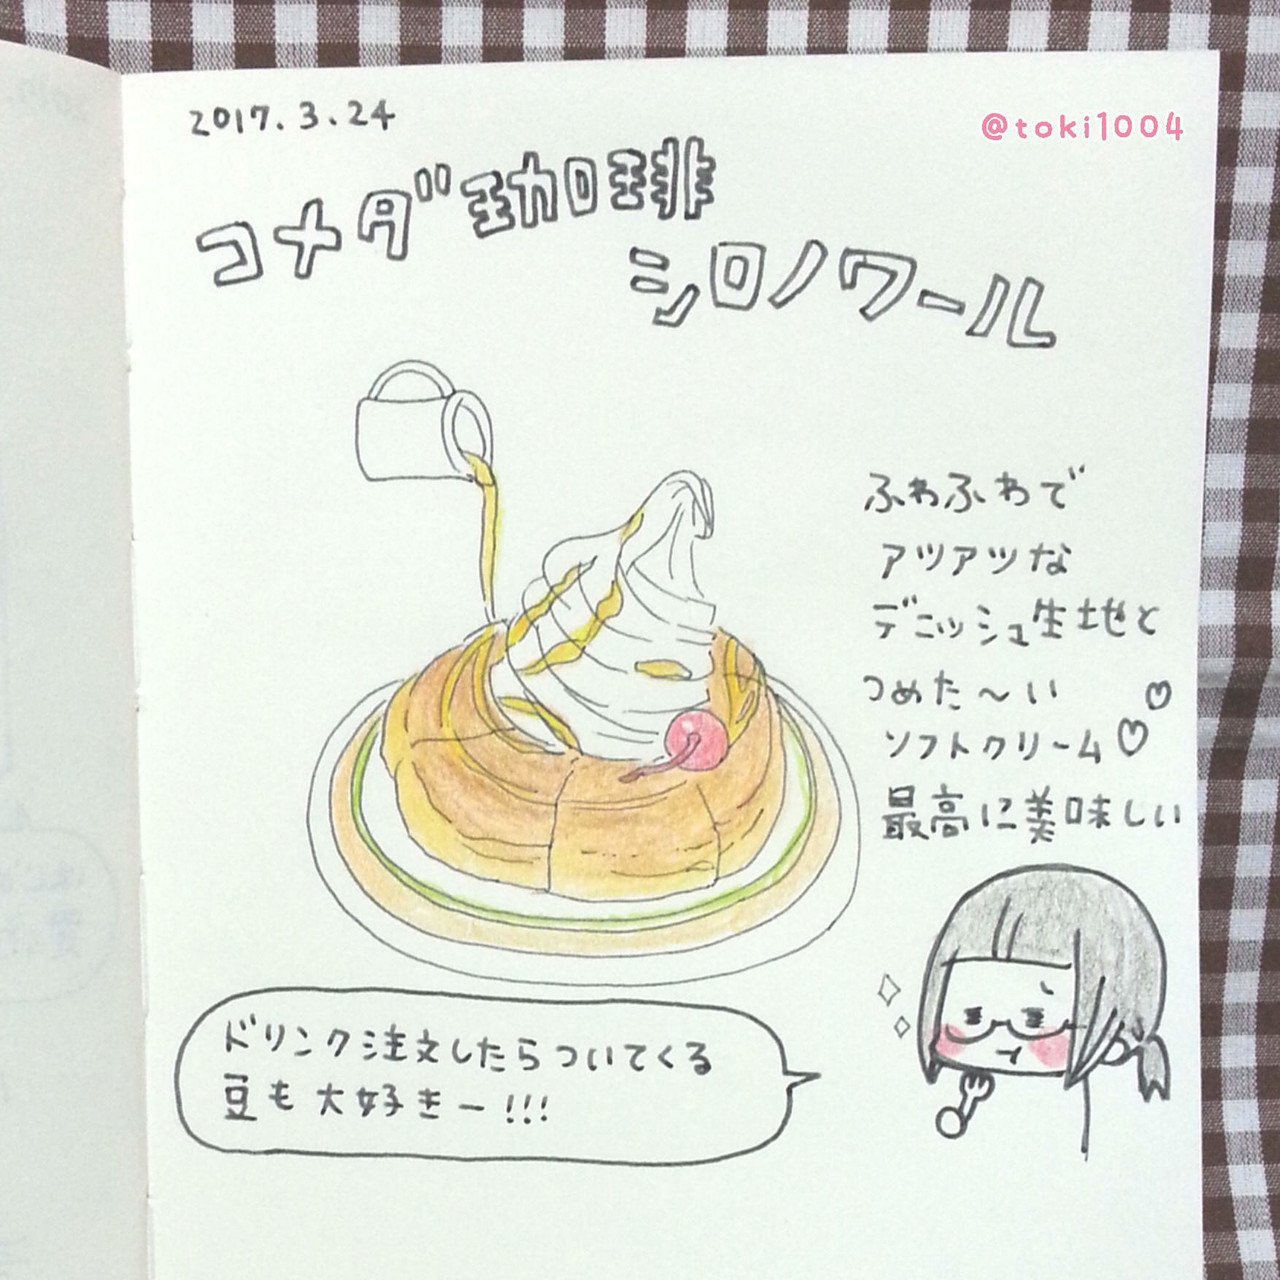 2017.3.24
@toki1004
コメダ珈琲
シロノワール
ふわふわで
アツアツな
デニッシュ生地と
つめた〜い
ソフトクリーム♡♡
最高に美味しい
ドリンク注文したらついてくる
豆も大好きー!!!